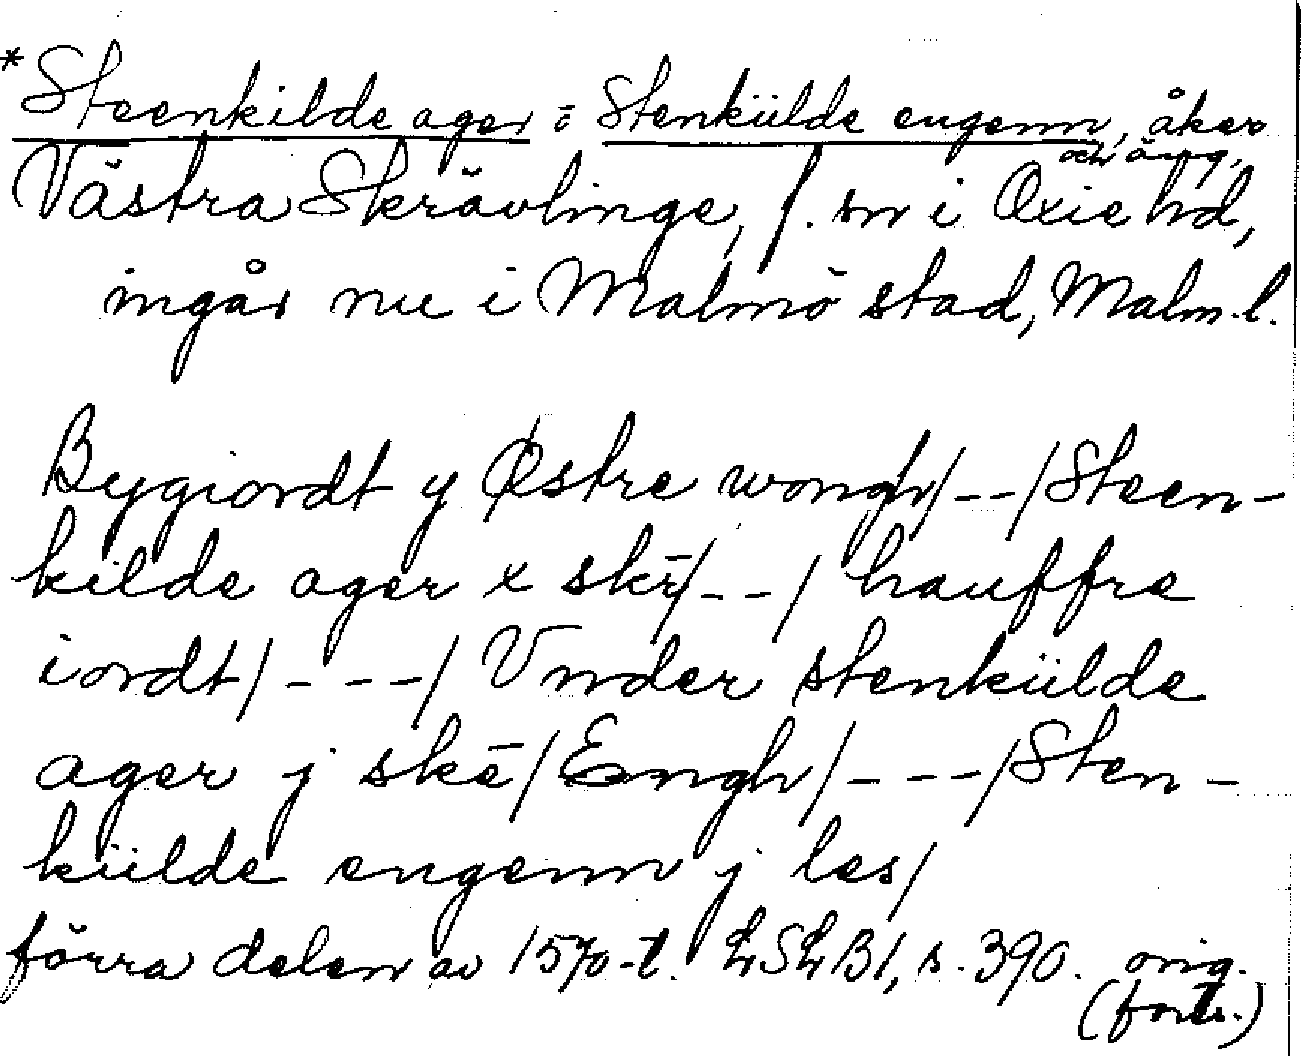 *Steenkilde ager = Stenkülde engenn, åker
och äng,
Västra Skrävlinge, f. sn i Oxie hd,
ingår nu i Malmö stad, Malm. l.
Bygiordt y Østre wongh/--/Steen-
kilde ager x skē/--/ hauffre
iordt/---/ Vnder stenkülde
ager j skē/Engh/---/Sten-
külde engenn j les/
förra delen av 1570-t. LSLB 1, s. 390. orig.
(forts.)